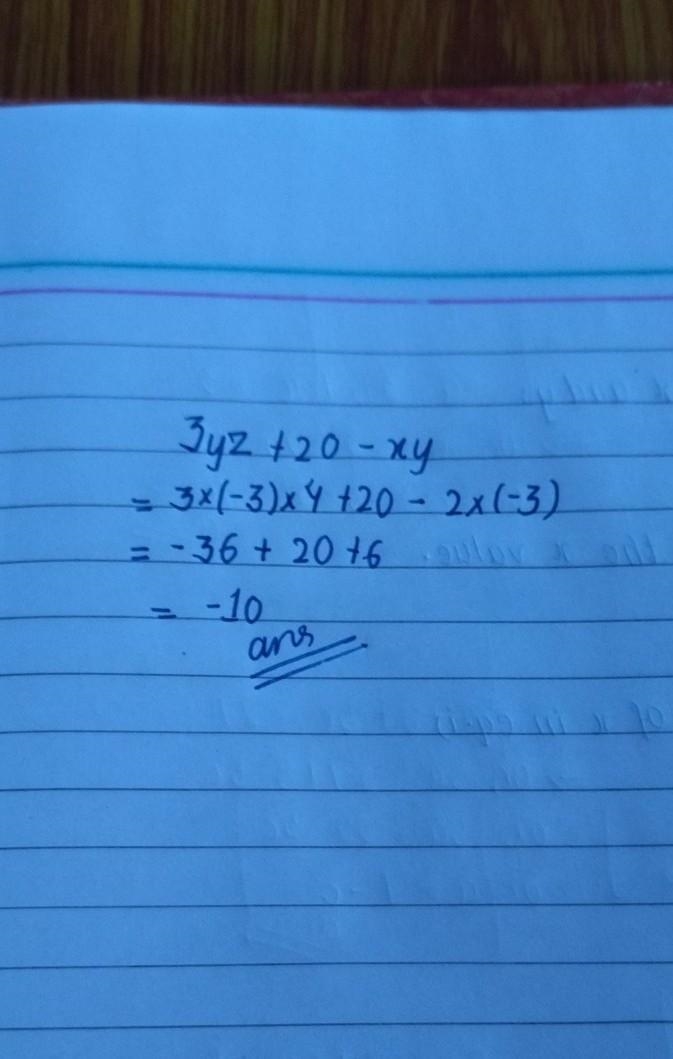 3yz + 20 - xy
= 3×(-3)×4 + 20 - 2×(-3)
= -36 + 20 + 6
= -10
ans